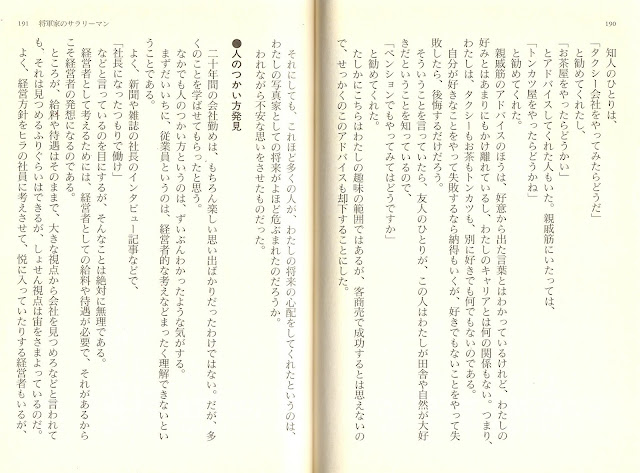 190
知人のひとりは、
「タクシー会社をやってみたらどうだ」
と勧めてくれたし、
「お茶屋をやったらどうかい」
とアドバイスしてくれた人もいた。親戚筋にいたっては、
「トンカツ屋をやったらどうかね」
と勧めてくれた。
親戚筋のアドバイスのほうは、好意から出た言葉とはわかっているけれど、わたしの
好みとはあまりにもかけ離れているし、わたしのキャリアとは何の関係もない。つまり、
わたしは、タクシーもお茶もトンカツも、別に好きでも何でもないのである。
自分が好きなことをやって失敗するなら納得もいくが、好きでもないことをやって失
敗したら、後悔するだけだろう。
そういうことを言っていたら、友人のひとりが、この人はわたしが田舎や自然が大好
きだということを知っているので、
「ペンションでもやってみてはどうですか」
と勧めてくれた。
たしかにこちらはわたしの趣味の範囲ではあるが、客商売で成功するとは思えないの
で、せっかくのこのアドバイスも却下することにした。
191 将軍家のサラリーマン
それにしても、これほど多くの人が、わたしの将来の心配をしてくれたというのは、
わたしの写真家としての将来がよほど危ぶまれたのだろうか。
われながら不安な思いをさせたものだった。
●人のつかい方発見
二十年間の会社勤めは、もちろん楽しい思い出ばかりだったわけではない。だが、多
くのことを学ばせてもらったと思う。
なかでも人のつかい方というのは、ずいぶんわかったような気がする。
まずだいいちに、従業員というのは、経営者的な考えなどまったく理解できないとい
うことである。
よく、新聞や雑誌の社長のインタビュー記事などで、
「社長になったつもりで働け」
などと言っているのを目にするが、そんなことは絶対に無理である。
経営者として考えるためには、経営者としての給料や待遇が必要で、それがあるから
こそ経営者の発想になるのである。
ところが、給料や待遇はそのままで、大きな視点から会社を見つめろなどと言われて
も、それは見つめるふりぐらいはできるが、しょせん視点は宙をさまよっているのだ。
よく、経営方針をヒラの社員に考えさせて、悦に入っていたりする経営者もいるが、